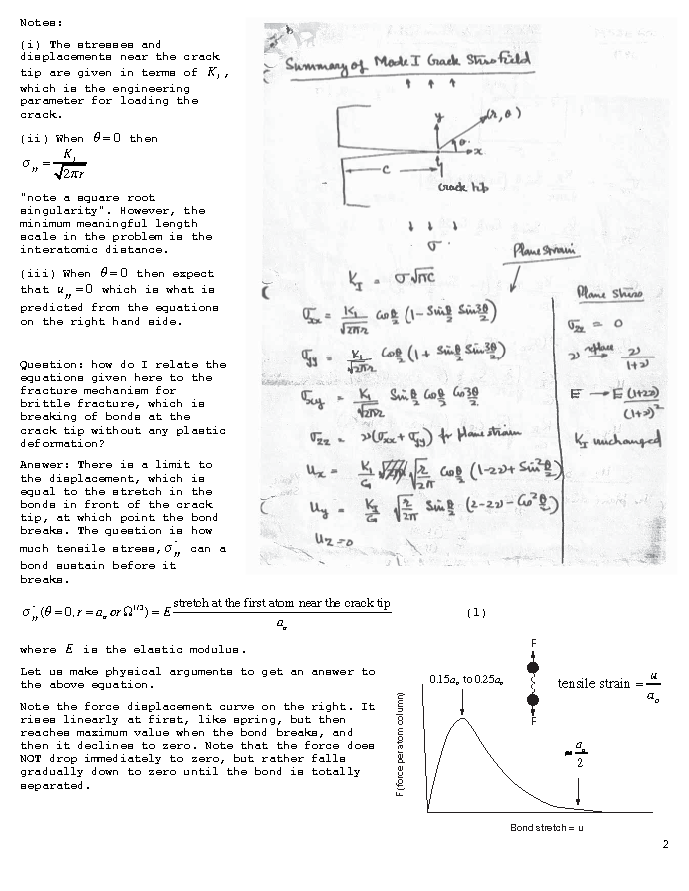 Notes:
(i) The stresses and
displacements near the crack
tip are given in terms of K_I,
which is the engineering
parameter for loading the
crack.
(ii) When θ=0 then
σ_yy = K_I / √(2πr)
"note a square root
singularity". However, the
minimum meaningful length
scale in the problem is the
interatomic distance.
(iii) When θ=0 then expect
that u_yy=0 which is what is
predicted from the equations
on the right hand side.
Question: how do I relate the
equations given here to the
fracture mechanism for
brittle fracture, which is
breaking of bonds at the
crack tip without any plastic
deformation?
Answer: There is a limit to
the displacement, which is
equal to the stretch in the
bonds in front of the crack
tip, at which point the bond
breaks. The question is how
much tensile stress, σ*_yy can a
bond sustain before it
breaks.
Summary of Mode I Crack Stress Field
y
(r, θ)
θ
x
c
crack tip
σ
K_I = σ√πc
Plane Strain
σ_xx = K_I/√2πr Cos θ/2 (1 - Sin θ/2 Sin 3θ/2)
σ_yy = K_I/√2πr Cos θ/2 (1 + Sin θ/2 Sin 3θ/2)
σ_xy = K_I/√2πr Sin θ/2 Cos θ/2 Cos 3θ/2
σ_zz = ν(σ_xx + σ_yy) for plane strain
u_x = K_I/G √r/2π Cos θ/2 (1-2ν + Sin² θ/2)
u_y = K_I/G √r/2π Sin θ/2 (2-2ν - Cos² θ/2)
u_z = 0
Plane Stress
σ_zz = 0
ν replace ν/(1+ν)
E → E(1+2ν)/(1+ν)²
K_I unchanged
σ*_yy(θ=0, r=a_o or Ω^1/3) = E stretch at the first atom near the crack tip / a_o (1)
where E is the elastic modulus.
Let us make physical arguments to get an answer to
the above equation.
Note the force displacement curve on the right. It
rises linearly at first, like spring, but then
reaches maximum value when the bond breaks, and
then it declines to zero. Note that the force does
NOT drop immediately to zero, but rather falls
gradually down to zero until the bond is totally
separated.
F (force per atom column)
0.15a_o to 0.25a_o
F
F
tensile strain = u/a_o
≈ a_o/2
Bond stretch = u
2